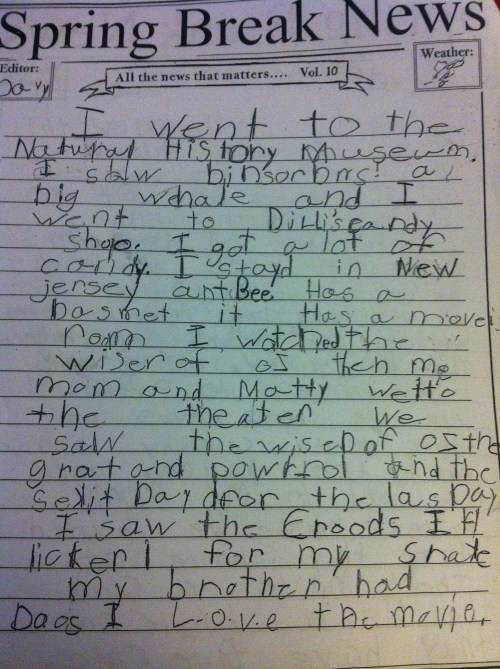 Spring Break News
Editor:
Davy
All the news that matters.... Vol. 10
Weather:
I went to the
Natural History Museum.
I saw binsorbrs! a
big whale and I
went to Dilli's candy
shop. I got a lot of
candy. I stayd in New
jersey antBee Has a
basmet it Has a movei
room I watched the
wiser of os then me
mom and Matty wetto
the theater We
saw the wised of os the
grat and powrrol and the
Sekit Day dfor the las Day
I saw the Croods I
licker for my snake
my brother had
Daos I L.o.v.e the movie.